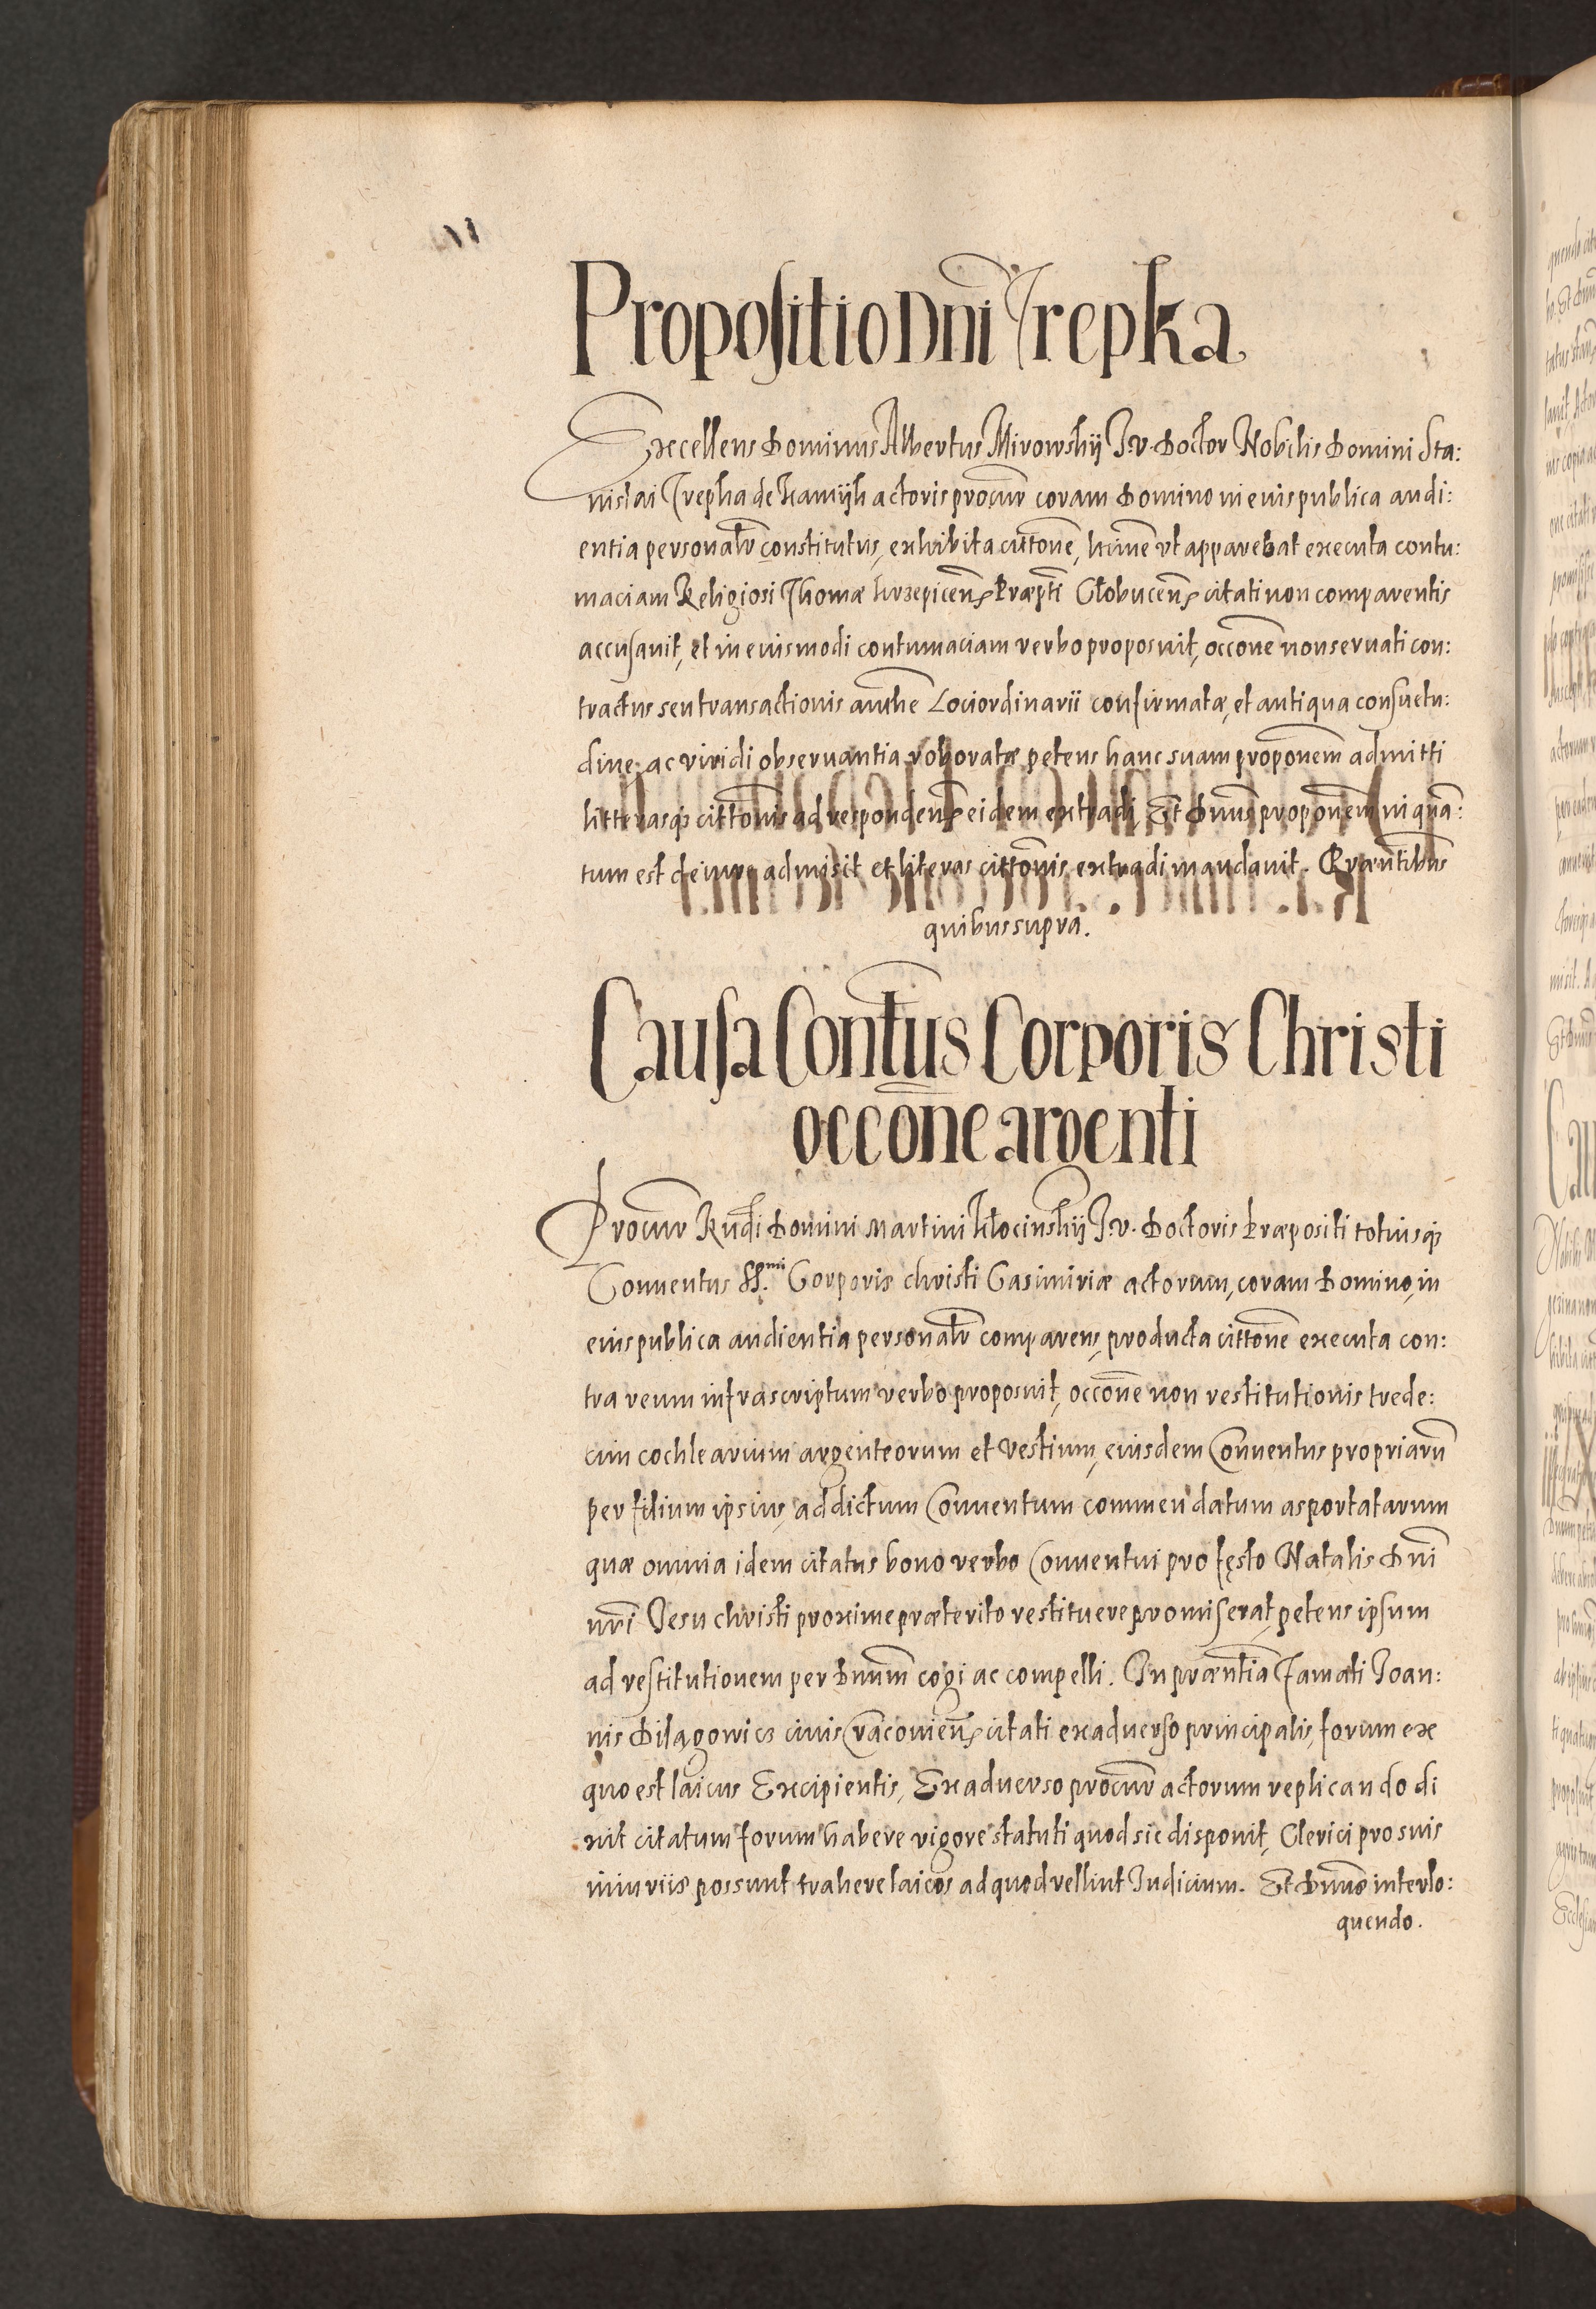 Propositio Dni Trepka
Excellens Dominus Albertus Mirowskij I. v. Doctor Nobilis Domini Sta:
nislai Trepka de actoris procur coram Domino in eius publica audi:
entia personalr constitutus, exhibita cittone, ut apparebat executa contu:
maciam Religiosi Thomæ Præpti Clobucens citati non comparentis
accusauit, et in eiusmodi contumaciam verbo proposuit, occone non seruati con:
tractus seu transactionis authe Loci ordinarii confirmatæ, et antiqua consuetu:
dine, ac viridi obseruantia roboratæ petens hanc suam proponem admitti
litterasq; cittonis ad respondens eidem extradi, Et Dnus proponem in quan:
tum est de iure admisit et literas cittonis extradi mandauit. Præntibus
quibus supra.
Causa Contus Corporis Christi
occone argenti
Procur Rndi Domini Martini Klocinskij I. v. Doctoris Præpositi totiusq;
Conuentus SS.mi Corporis christi Casimiriæ actorum, coram Domino, in
eius publica audientia personalr comparens, producta cittone executa con:
tra reum infrascriptum verbo proposuit, occone non restitutionis trede:
cim cochlearium argenteorum et vestium, eiusdem Conuentus propriaru
per filium ipsius, ad dictum Conuentum commendatum asportatarum
quæ omnia idem citatus bono verbo Conuentui pro festo Natalis Dni
nri Iesu christi proxime præterito restituere promiserat, petens ipsum
ad restitutionem per Dnum cogi ac compelli. In præntia Famati Ioan:
nis civis Cracouiens citati ex aduerso principalis, forum ex
quo est laicus Excipientis, Ex aduerso procur actorum replicando di
xit citatum forum habere vigore statuti quod sic disponit, Clerici pro suis
iniuriis possunt trahere laicos ad quod vellint Iudicium. Et Dnus interlo:
quendo.